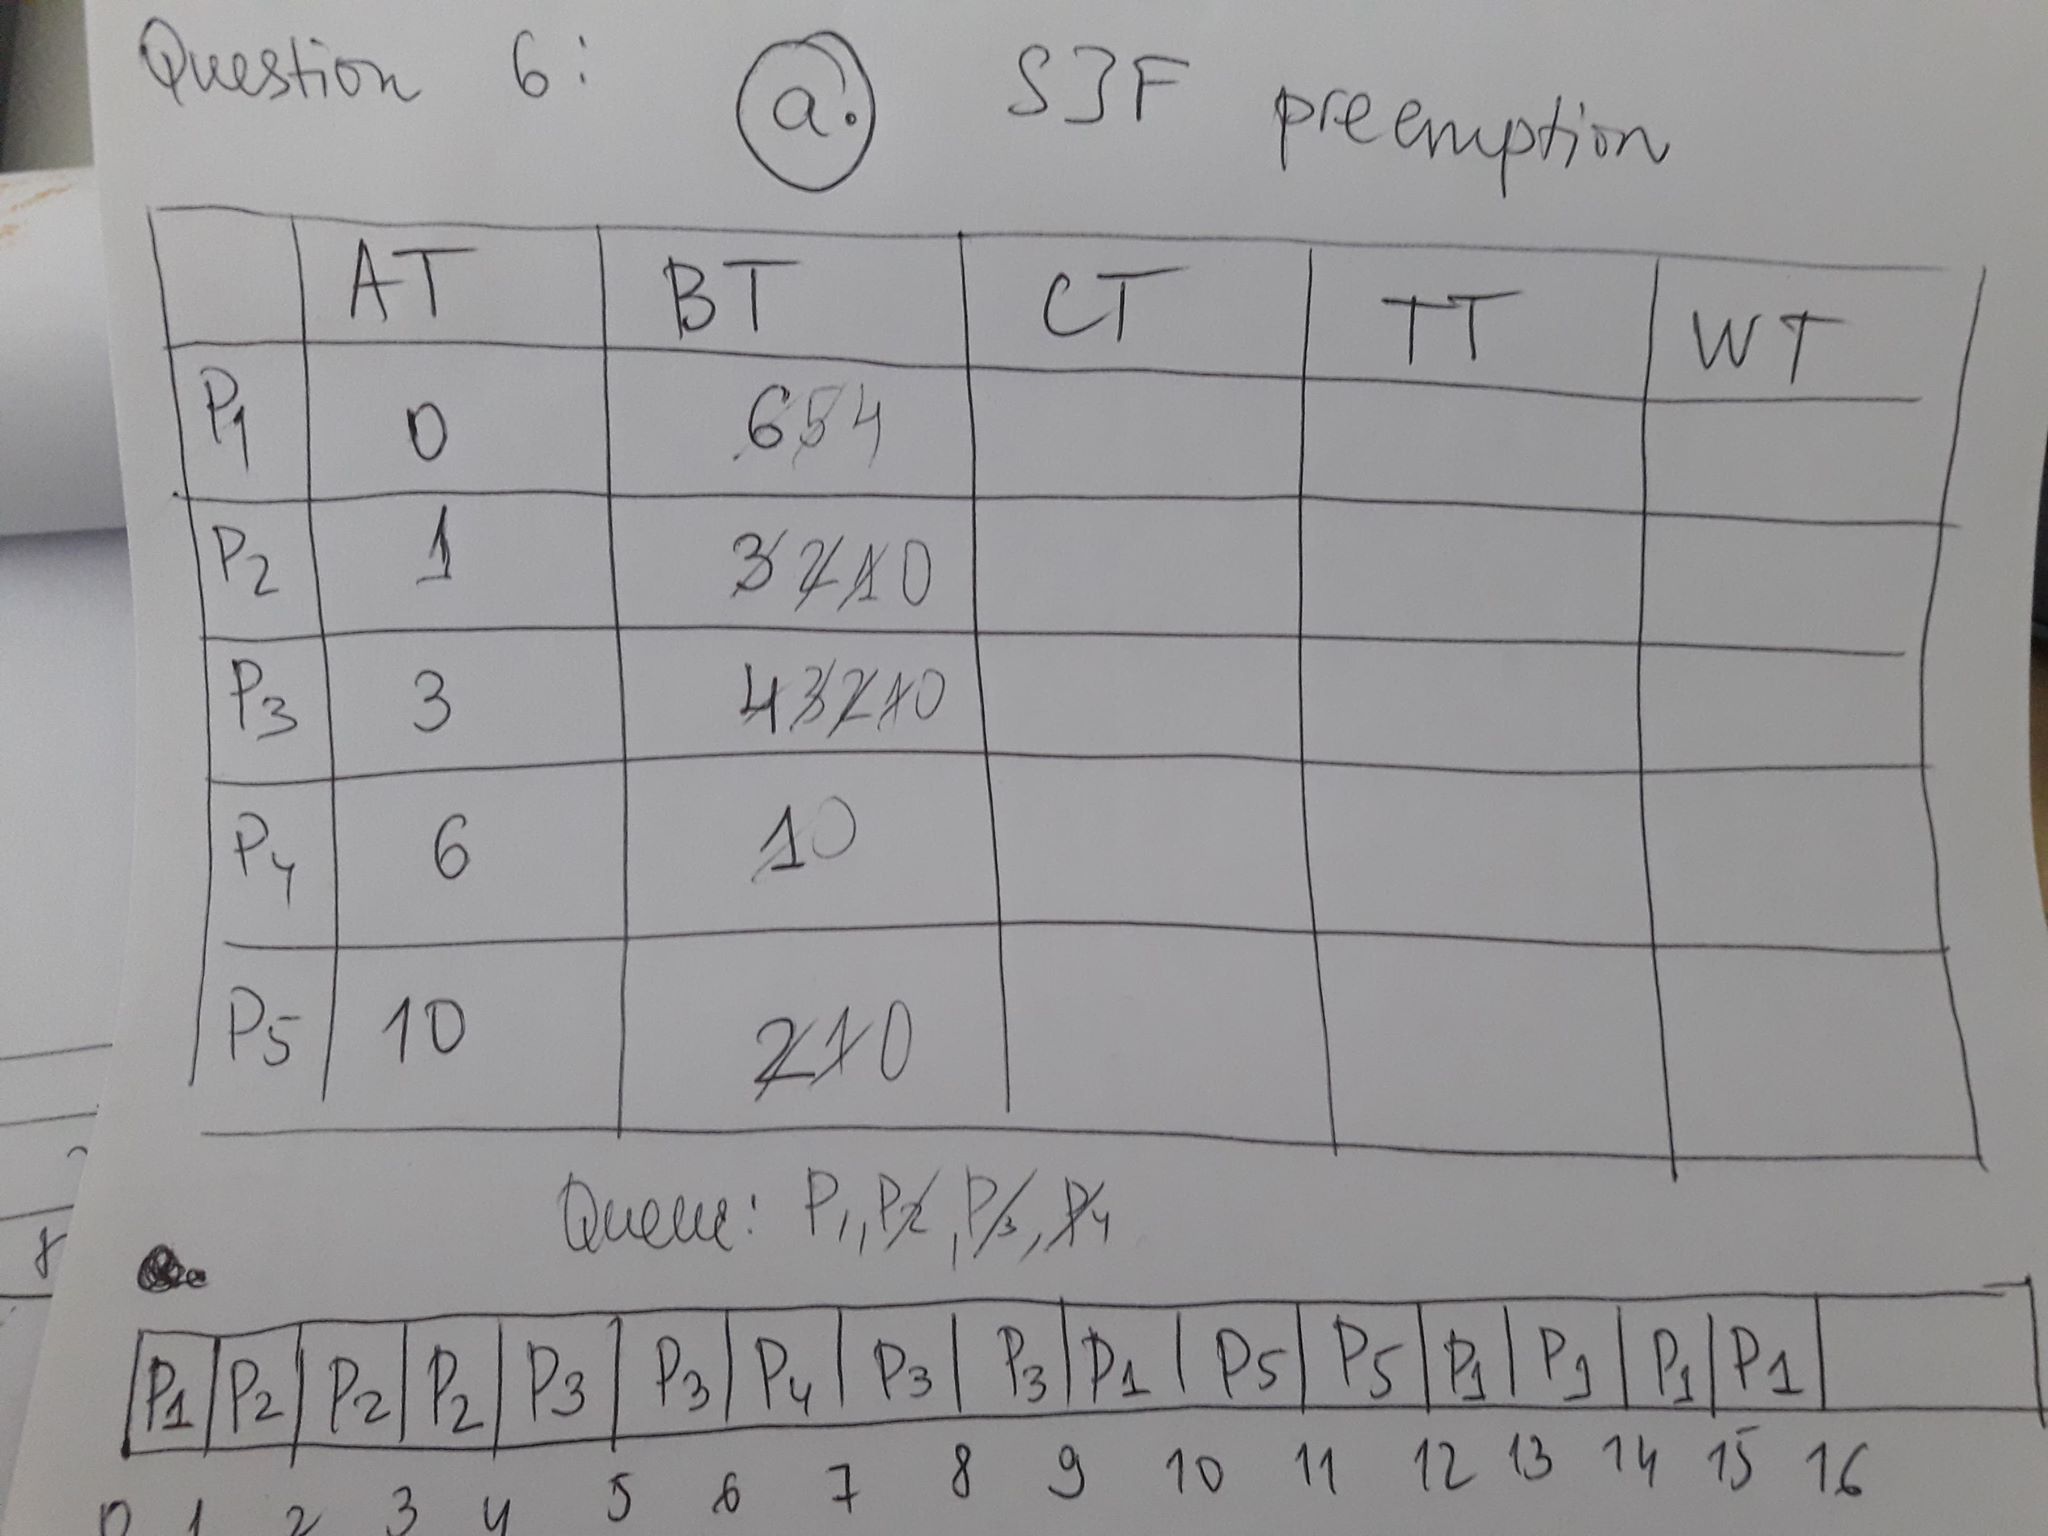 Question 6: a. SJF preemption
AT BT CT TT WT
P1 0 6 5 4
P2 1 3 2 1 0
P3 3 4 3 2 1 0
P4 6 1 0
P5 10 2 1 0
Queue: P1, P2, P3, P4
P1 P2 P2 P2 P3 P3 P4 P3 P3 P1 P5 P5 P1 P1 P1 P1
0 1 2 3 4 5 6 7 8 9 10 11 12 13 14 15 16
8